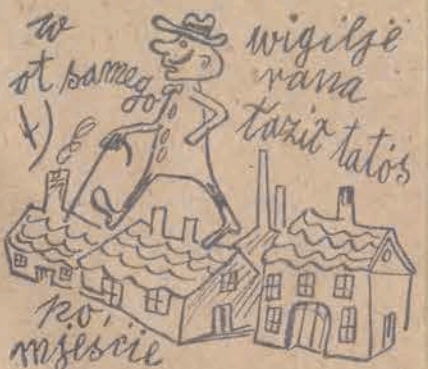 w wigilje
ot samego rana
łaził tatós
po,
mjeście